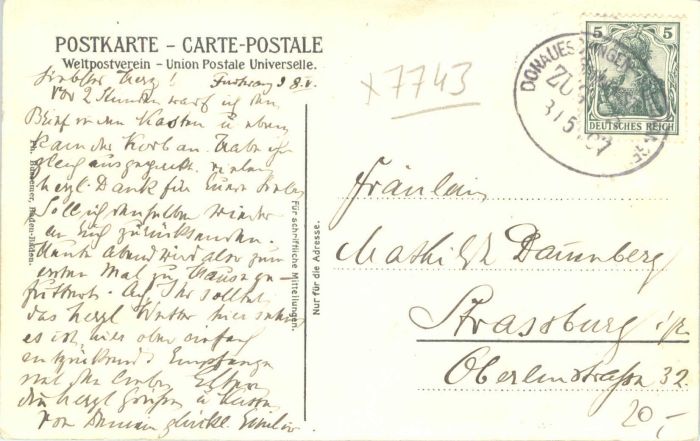 POSTKARTE – CARTE-POSTALE
Weltpostverein – Union Postale Universelle.
Liebster Herz! Furtwang 8.V.
Vor 2 Stunden warf ich den
Brief in den Kasten u eben
kam der Korb an. Habe ihn
gleich ausgepackt. vielen
herzl. Dank für Eure
Soll ich denselben wieder
an Euch zurücksenden.
Heute Abend wird also zum
ersten Mal zu Hause ge-
das herzl Wetter hier sehen
es ist hier oben einfach
entzückend. Empfange
mit den lieben Eltern
die herzl Grüße u Küsse
von Deinem
Für schriftliche Mitteilungen.
Nur für die Adresse.
x7743
DONAUESCHINGEN
ZUG
31 5 07
5 5
DEUTSCHES REICH
Fräulein
Mathilde Daumberg
Strassburg i/E
Oberlinstraße 32.
20,-